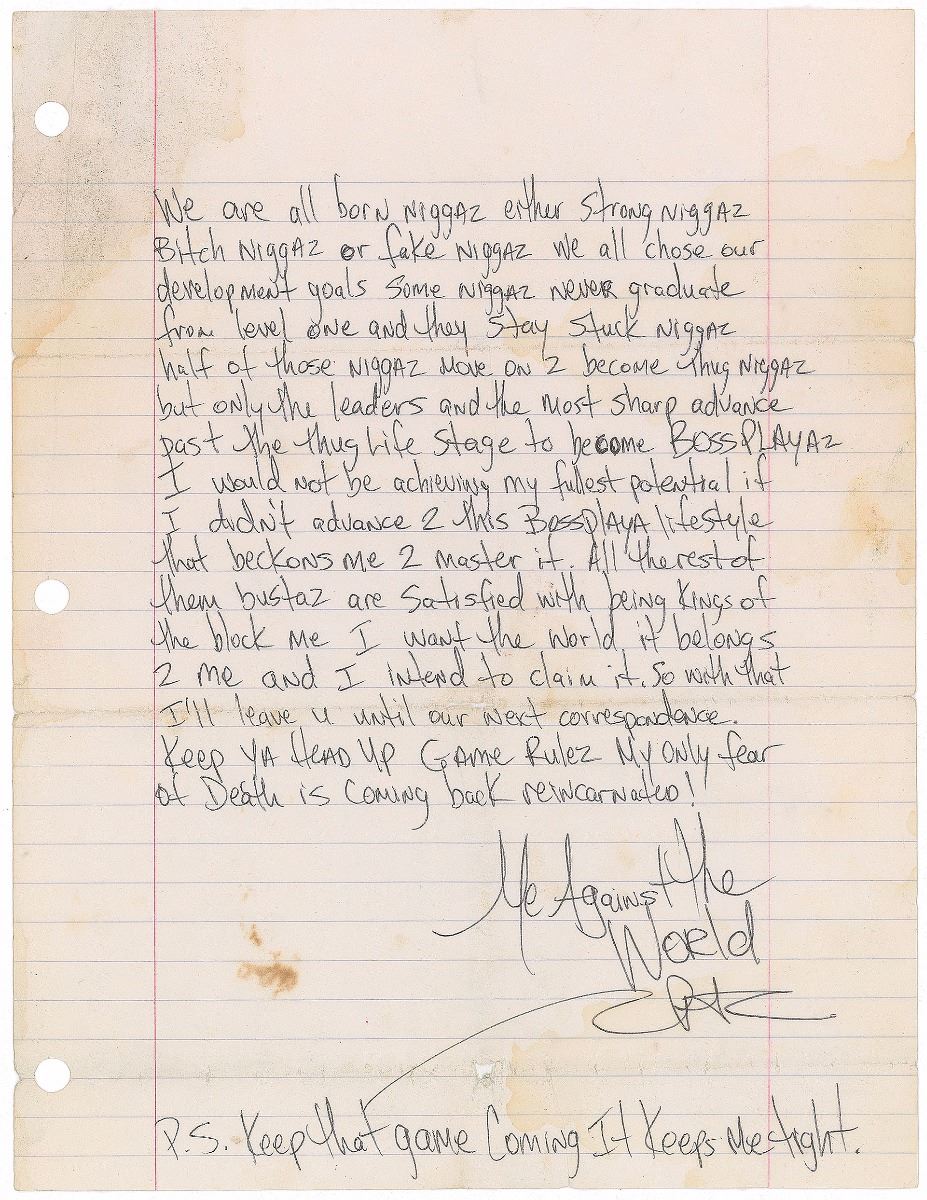 We are all born NiggAz either Strong NiggAz
Bitch NiggAz or fake NiggAz we all chose our
development goals Some NiggAz Never graduate
from level one and they Stay Stuck NiggAz
half of those NiggAz Move on 2 become thug NiggAz
but only the leaders and the Most Sharp advance
past the thug Life Stage to become BOSS PLAYAz
I would not be achieving my fullest potential if
I didn't advance 2 this BossplAyA lifestyle
that beckons me 2 master it. All the rest of
them bustaz are Satisfied with being Kings of
the block Me I want the World it belongs
2 me and I intend to claim it. So with that
I'll leave u until our next correspondence.
Keep YA HeAD Up GAme Rulez My Only fear
of Death is Coming back reincarnated!
Me Against the
World
P.S. Keep that game Coming It Keeps Me tight.